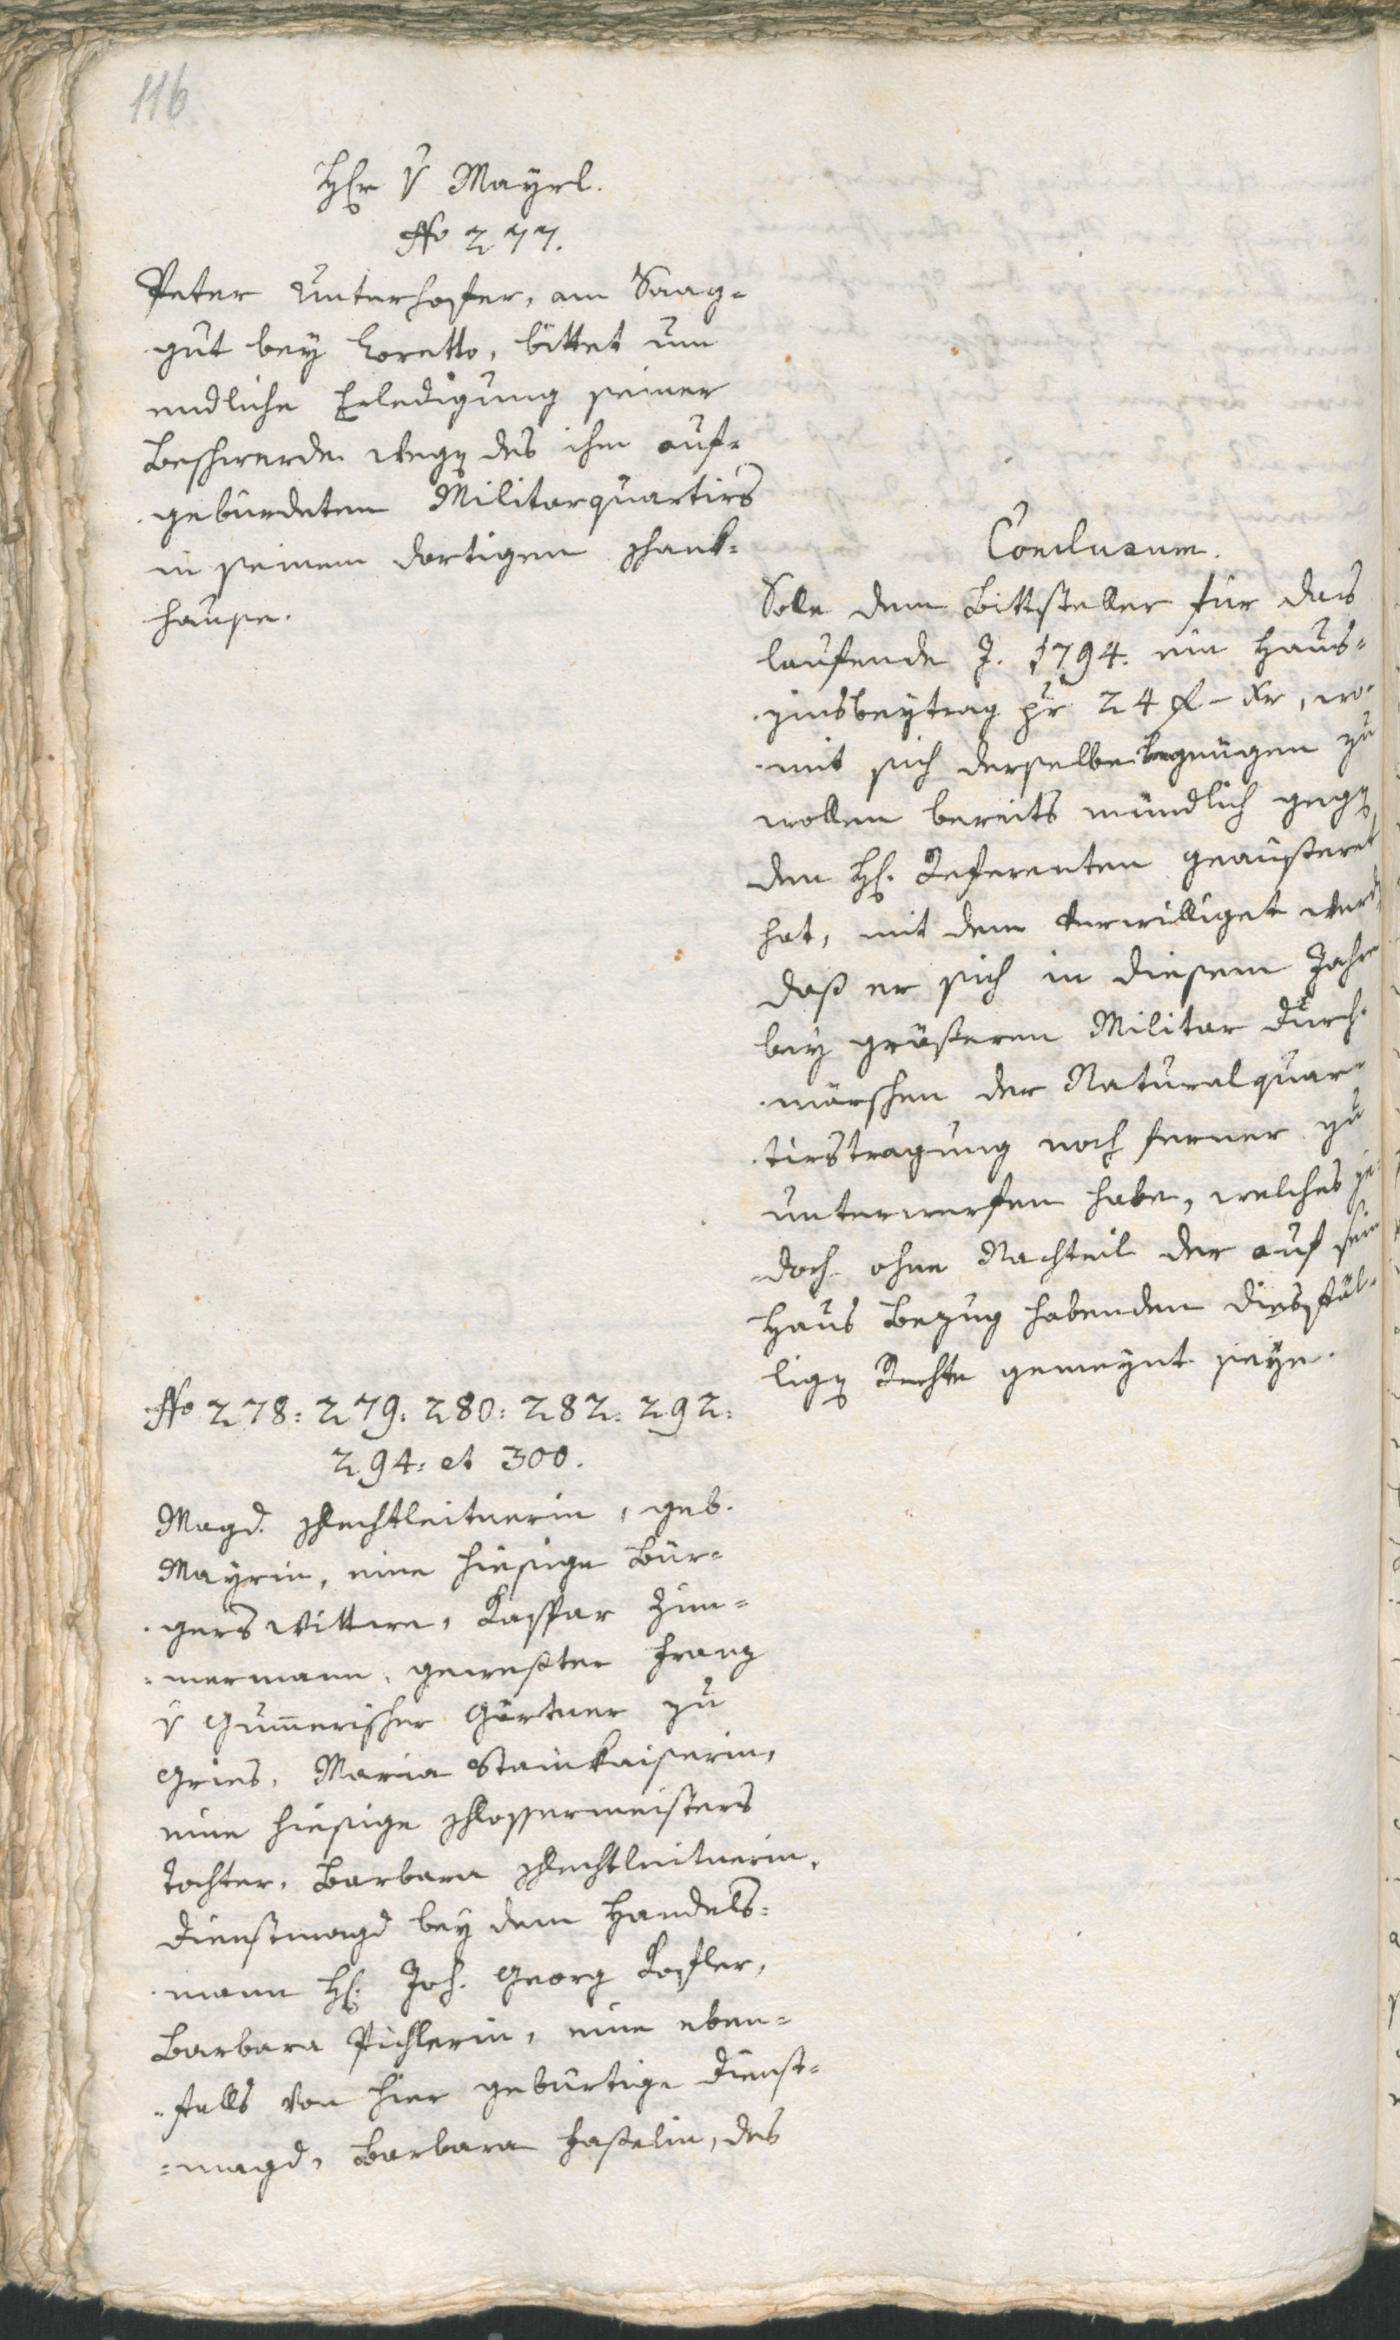 116
Hr v Mayrl.
No 277.
Peter Unterhofer, am Saag-
gut bey Loretto, bittet um
endliche Erledigung seiner
Beschwerde wegen des ihm auf-
gebürdeten Militarquartirs
in seinem dortigen Schank-
hause.
Conclusum.
Solle dem Bittsteller für das
laufende J. 1794. ein Haus-
zinsbeytrag pr 24 f – kr, wo-
mit sich derselbe begnügen zu
wollen bereits mündlich gegen
den H. Referenten geäusseret
hat, mit dem verwilliget werden,
daß er sich in diesem Jahre
bey größeren Militar Durch-
märschen der Naturalquar-
tirstragung noch ferner zu
unterwerfen habe, welches je-
doch ohne Nachteil der auf sein
Haus Bezug habenden diesfäl-
ligen Rechte gemeynt seye.
No 278: 279: 280: 282: 292:
294: et 300.
Magd. Schlechtleitnerin, geb.
Mayrin, eine hiesige Bür-
gers Wittwe, Kaspar Zim-
mermann, gewester Franz
v Gummerischer Gärtner zu
Gries, Maria Steinkaiserin,
eine hiesige Schlossermeisters
Tochter, Barbara Schlechtleitnerin,
Dienstmagd bey dem Handels-
mann H. Joh. Georg Kofler,
Barbara Pichlerin, eine eben-
falls von hier gebürtige Dienst-
magd, Barbara Haslin, des